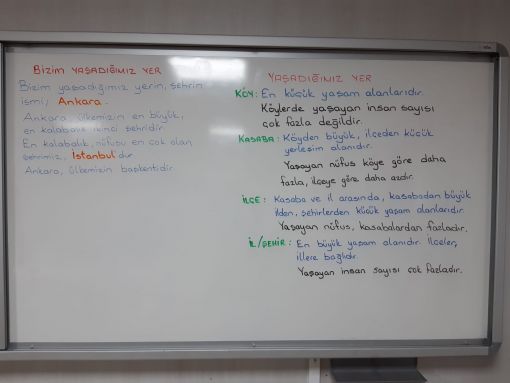 BİZİM YAŞADIĞIMIZ YER
Bizim yaşadığımız yerin, şehrin
ismi, Ankara.
Ankara, ülkemizin en büyük,
en kalabalık ikinci şehridir.
En kalabalık, nüfusu en çok olan
şehrimiz, İstanbul'dur
Ankara, ülkemizin başkentidir.
YAŞADIĞIMIZ YER
KÖY: En küçük yaşam alanlarıdır.
Köylerde yaşayan insan sayısı
çok fazla değildir.
KASABA: Köyden büyük, ilçeden küçük
yerleşim alanıdır.
Yaşayan nüfus köye göre daha
fazla, ilçeye göre daha azdır.
İLÇE: Kasaba ve il arasında, kasabadan büyük
ilden, şehirlerden küçük yaşam alanlarıdır.
Yaşayan nüfus, kasabalardan fazladır.
İL/ŞEHİR: En büyük yaşam alanıdır. İlçeler,
illere bağlıdır.
Yaşayan insan sayısı çok fazladır.